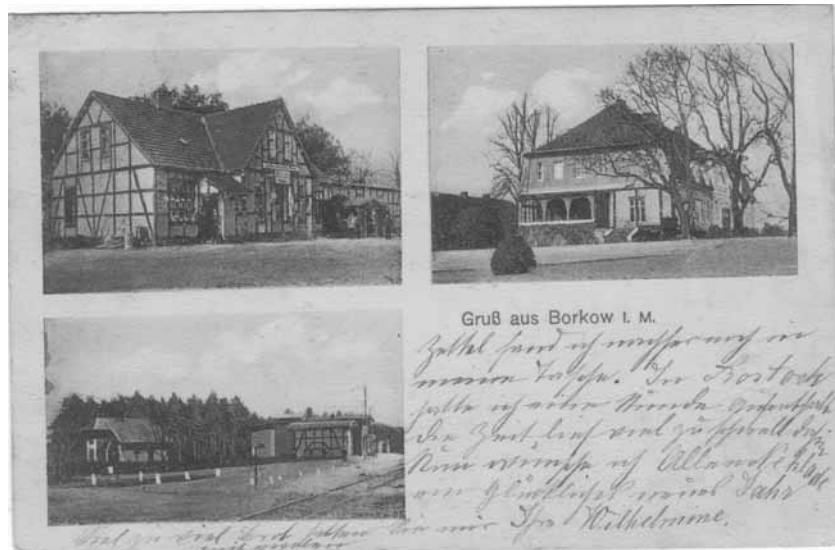 Gruß aus Borkow i. M.
Zettel fand ich nachher noch in
meiner Tasche. In Rostock
hatte ich eine Stunde Aufenthalt
die Zeit lief viel zu schnell
Nun wünsche ich Allen
ein glückliches neues Jahr
Ihre Wilhelmine.
viel zu viel Brot hatten Sie mir